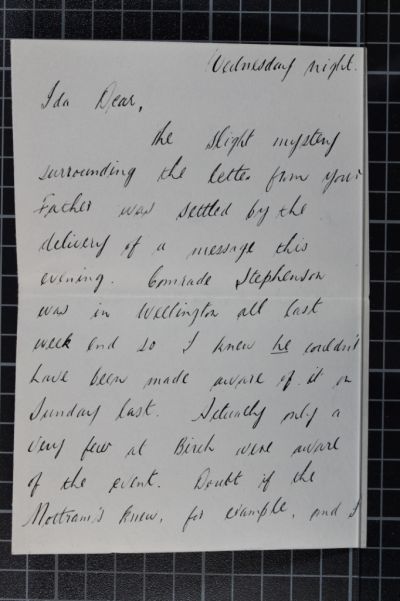 Wednesday night.
Ida Dear,
the slight mystery
surrounding the letter from your
Father was settled by the
delivery of a message this
evening. Comrade Stephenson
was in Wellington all last
week end so I knew he couldn't
have been made aware of it on
Sunday last. Actually only a
very few at Birch were aware
of the event. Doubt if the
Mottram's knew, for example, and I